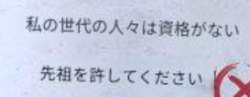 私の世代の人々は資格がない
先祖を許してください